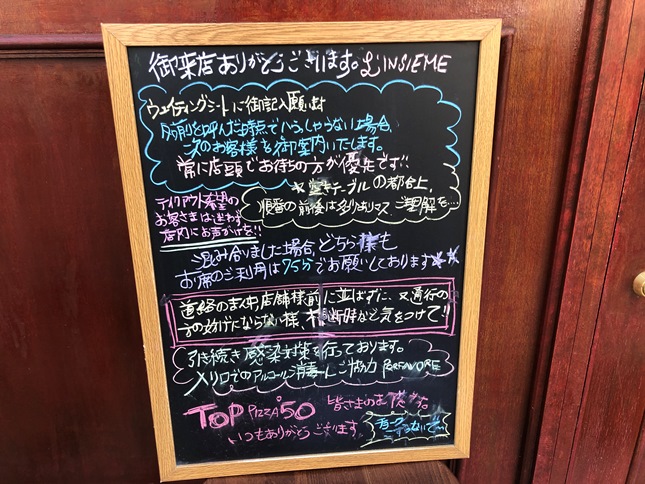 御来店ありがとうございます。L'INSIEME
ウェイティングシートに御記入願います
名前を呼んだ時点でいらっしゃらない場合、
次のお客様を御案内いたします。
常に店頭でお待ちの方が優先です!!
※空きテーブルの都合上、
順番の前後は多少有ります ご理解を…
テイクアウト希望の
お客さまは迷わず
店内にお声がけを!!
混み合いました場合、どちら様も
お席のご利用は75分でお願いしております
道路のまん中、店舗様前に並ばずに、又通行の
方の妨げにならない様、横断時など気をつけて!
引き続き感染対策を行っております。
入り口でのアルコール消毒 ご協力 PERFAVORE
TOP PIZZA 50 皆さまのお陰です。
いつもありがとうございます
チョーク
こすらないで…